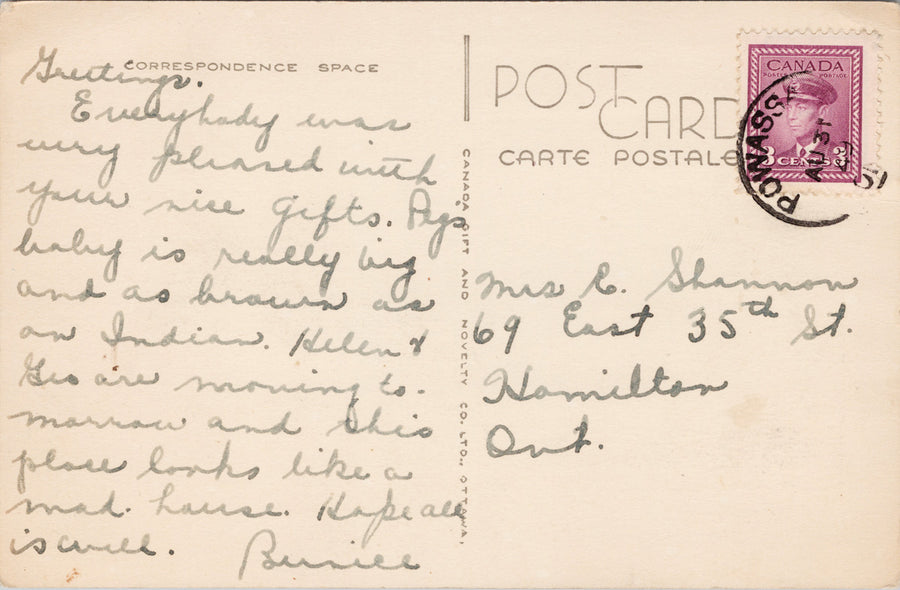 CORRESPONDENCE SPACE
Greetings.
Everybody was
very pleased with
your nice gifts. Pegs
baby is really big
and as brown as
an Indian. Helen &
Geo are moving to-
morrow and this
place looks like a
mad. house. Hope all
is well.
Bunice
CANADA GIFT AND NOVELTY CO. LTD., OTTAWA.
POST
CARD
CARTE POSTALE
CANADA
POSTES POSTAGE
3 CENTS 3
POWASSA
AU 31
51
Mrs C. Shannon
69 East 35th St.
Hamilton
Ont.